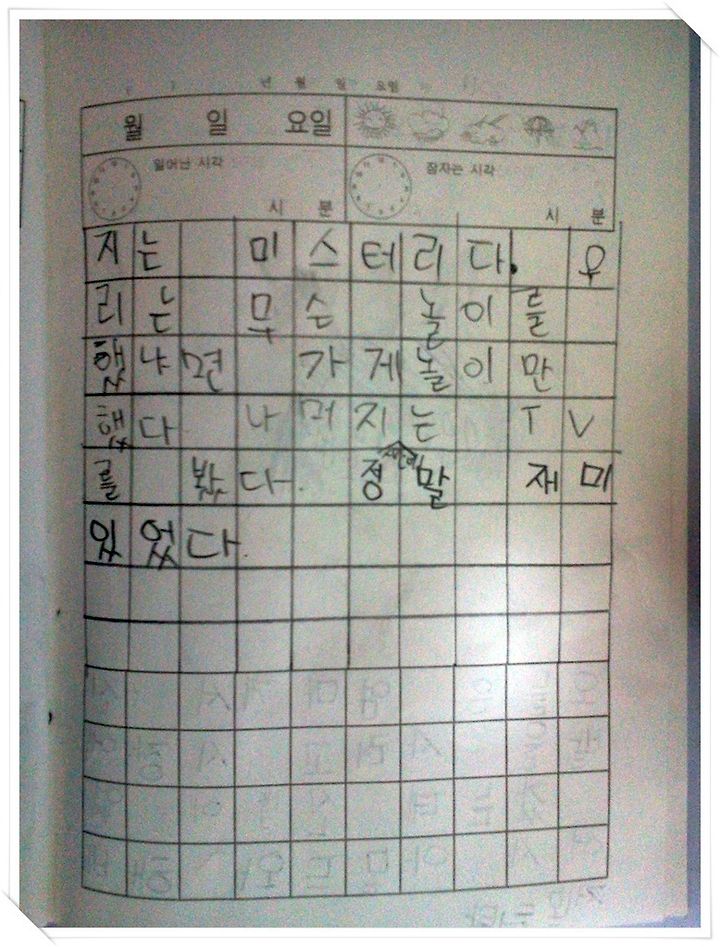 년 월 일 요일
월 일 요일
일어난 시각 시 분
잠자는 시각 시 분
지는 미스터리다. 우
리는 무슨 놀이를
했냐면 가게놀이만
했다. 나머지는 TV
를 봤다. 정말 재미
있었다.